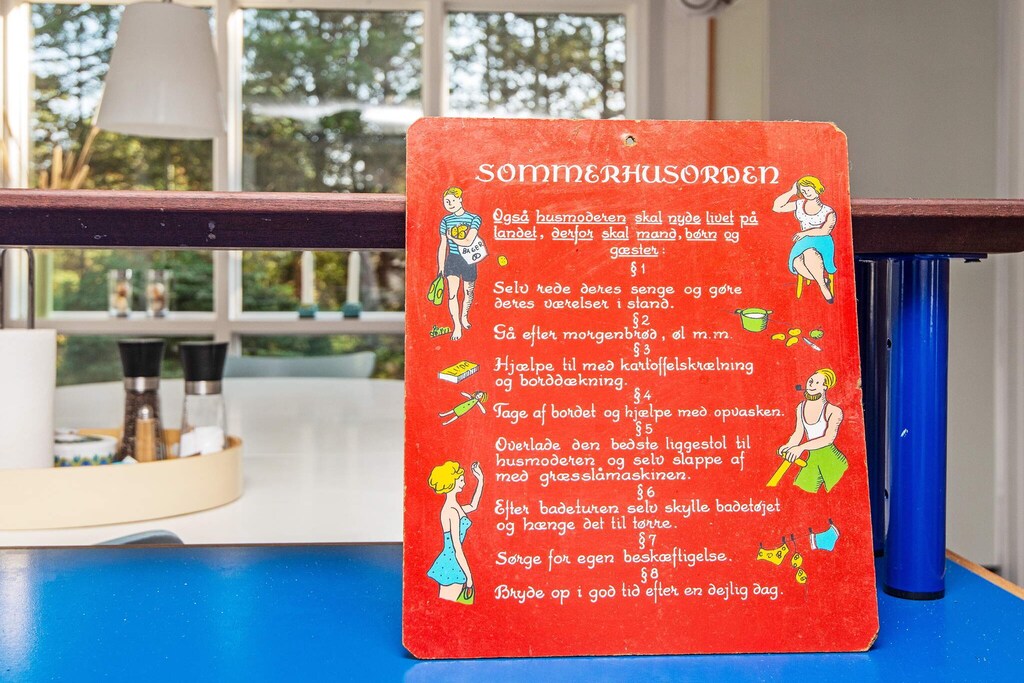 SOMMERHUSORDEN
Også husmoderen skal nyde livet på
landet, derfor skal mand, børn og
gæster:
§1
Selv rede deres senge og gøre
deres værelser i stand.
§2
Gå efter morgenbrød, øl m.m.
§3
Hjælpe til med kartoffelskrælning
og borddækning.
§4
Tage af bordet og hjælpe med opvasken.
§5
Overlade den bedste liggestol til
husmoderen og selv slappe af
med græsslåmaskinen.
§6
Efter badeturen selv skylle badetøjet
og hænge det til tørre.
§7
Sørge for egen beskæftigelse.
§8
Bryde op i god tid efter en dejlig dag.
BAGER